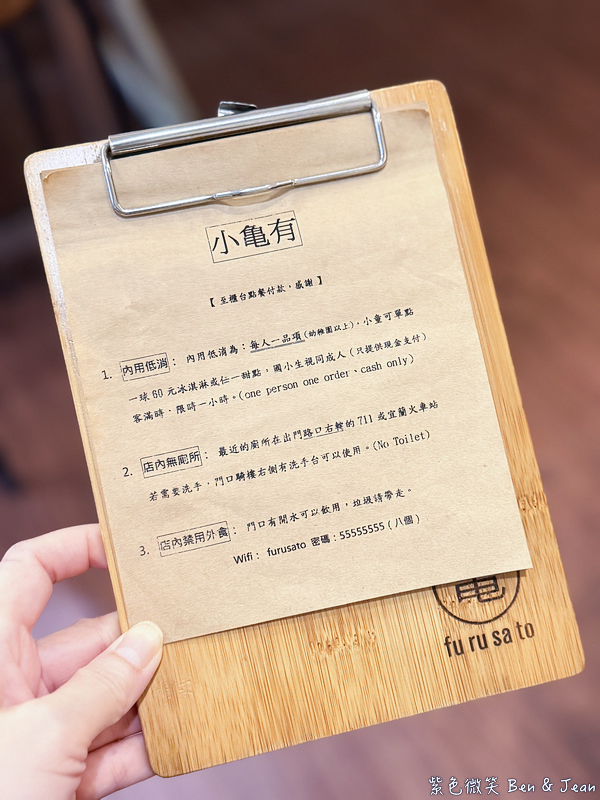 小亀有
【 至櫃台點餐付款,感謝 】
1. 內用低消: 內用低消為:每人一品項(幼稚園以上),小童可單點
一球60元冰淇淋或任一甜點,國小生視同成人(只提供現金支付)
客滿時,限時一小時。(one person one order、cash only)
2. 店內無廁所: 最近的廁所在出門路口右轉的 711 或宜蘭火車站
若需要洗手,門口騎樓右側有洗手台可以使用。(No Toilet)
3. 店內禁用外食: 門口有開水可以飲用,垃圾請帶走。
Wifi: furusato 密碼:55555555(八個)
亀
fu ru sa to
紫色微笑 Ben & Jean